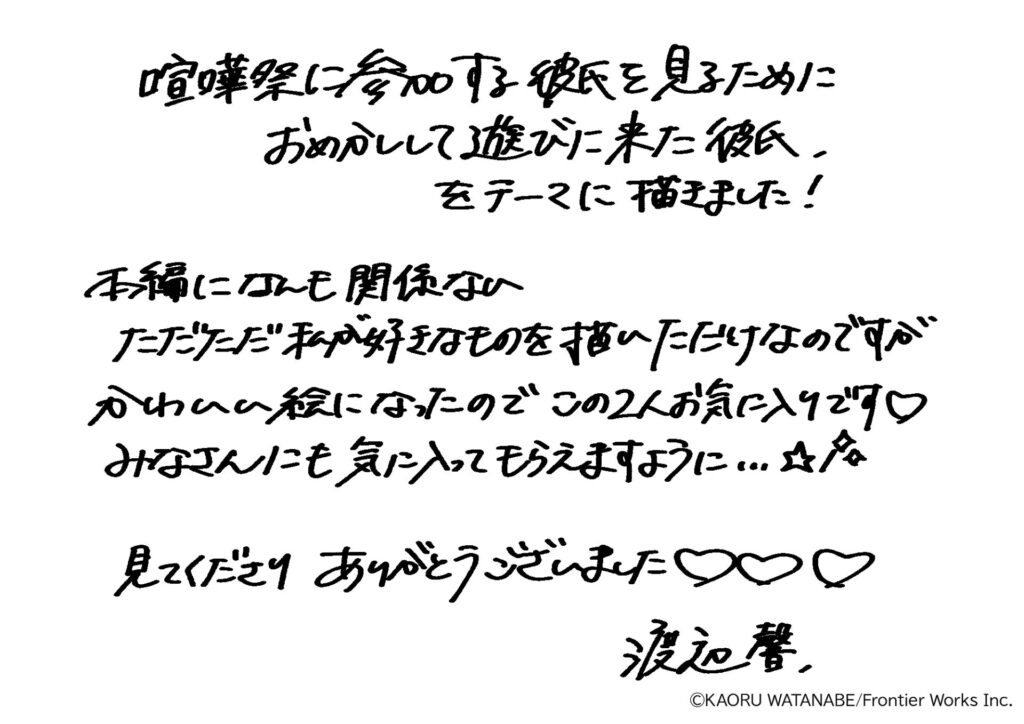 喧嘩祭に参加する彼氏を見るために
おめかしして遊びに来た彼氏、
をテーマに描きました!
本編になんも関係ない
ただただ私が好きなものを描いただけなのですが
かわいい絵になったのでこの2人お気に入りです♡
みなさんにも気に入ってもらえますように…☆
見てくださりありがとうございました♡♡♡
渡辺馨.
©KAORU WATANABE/Frontier Works Inc.